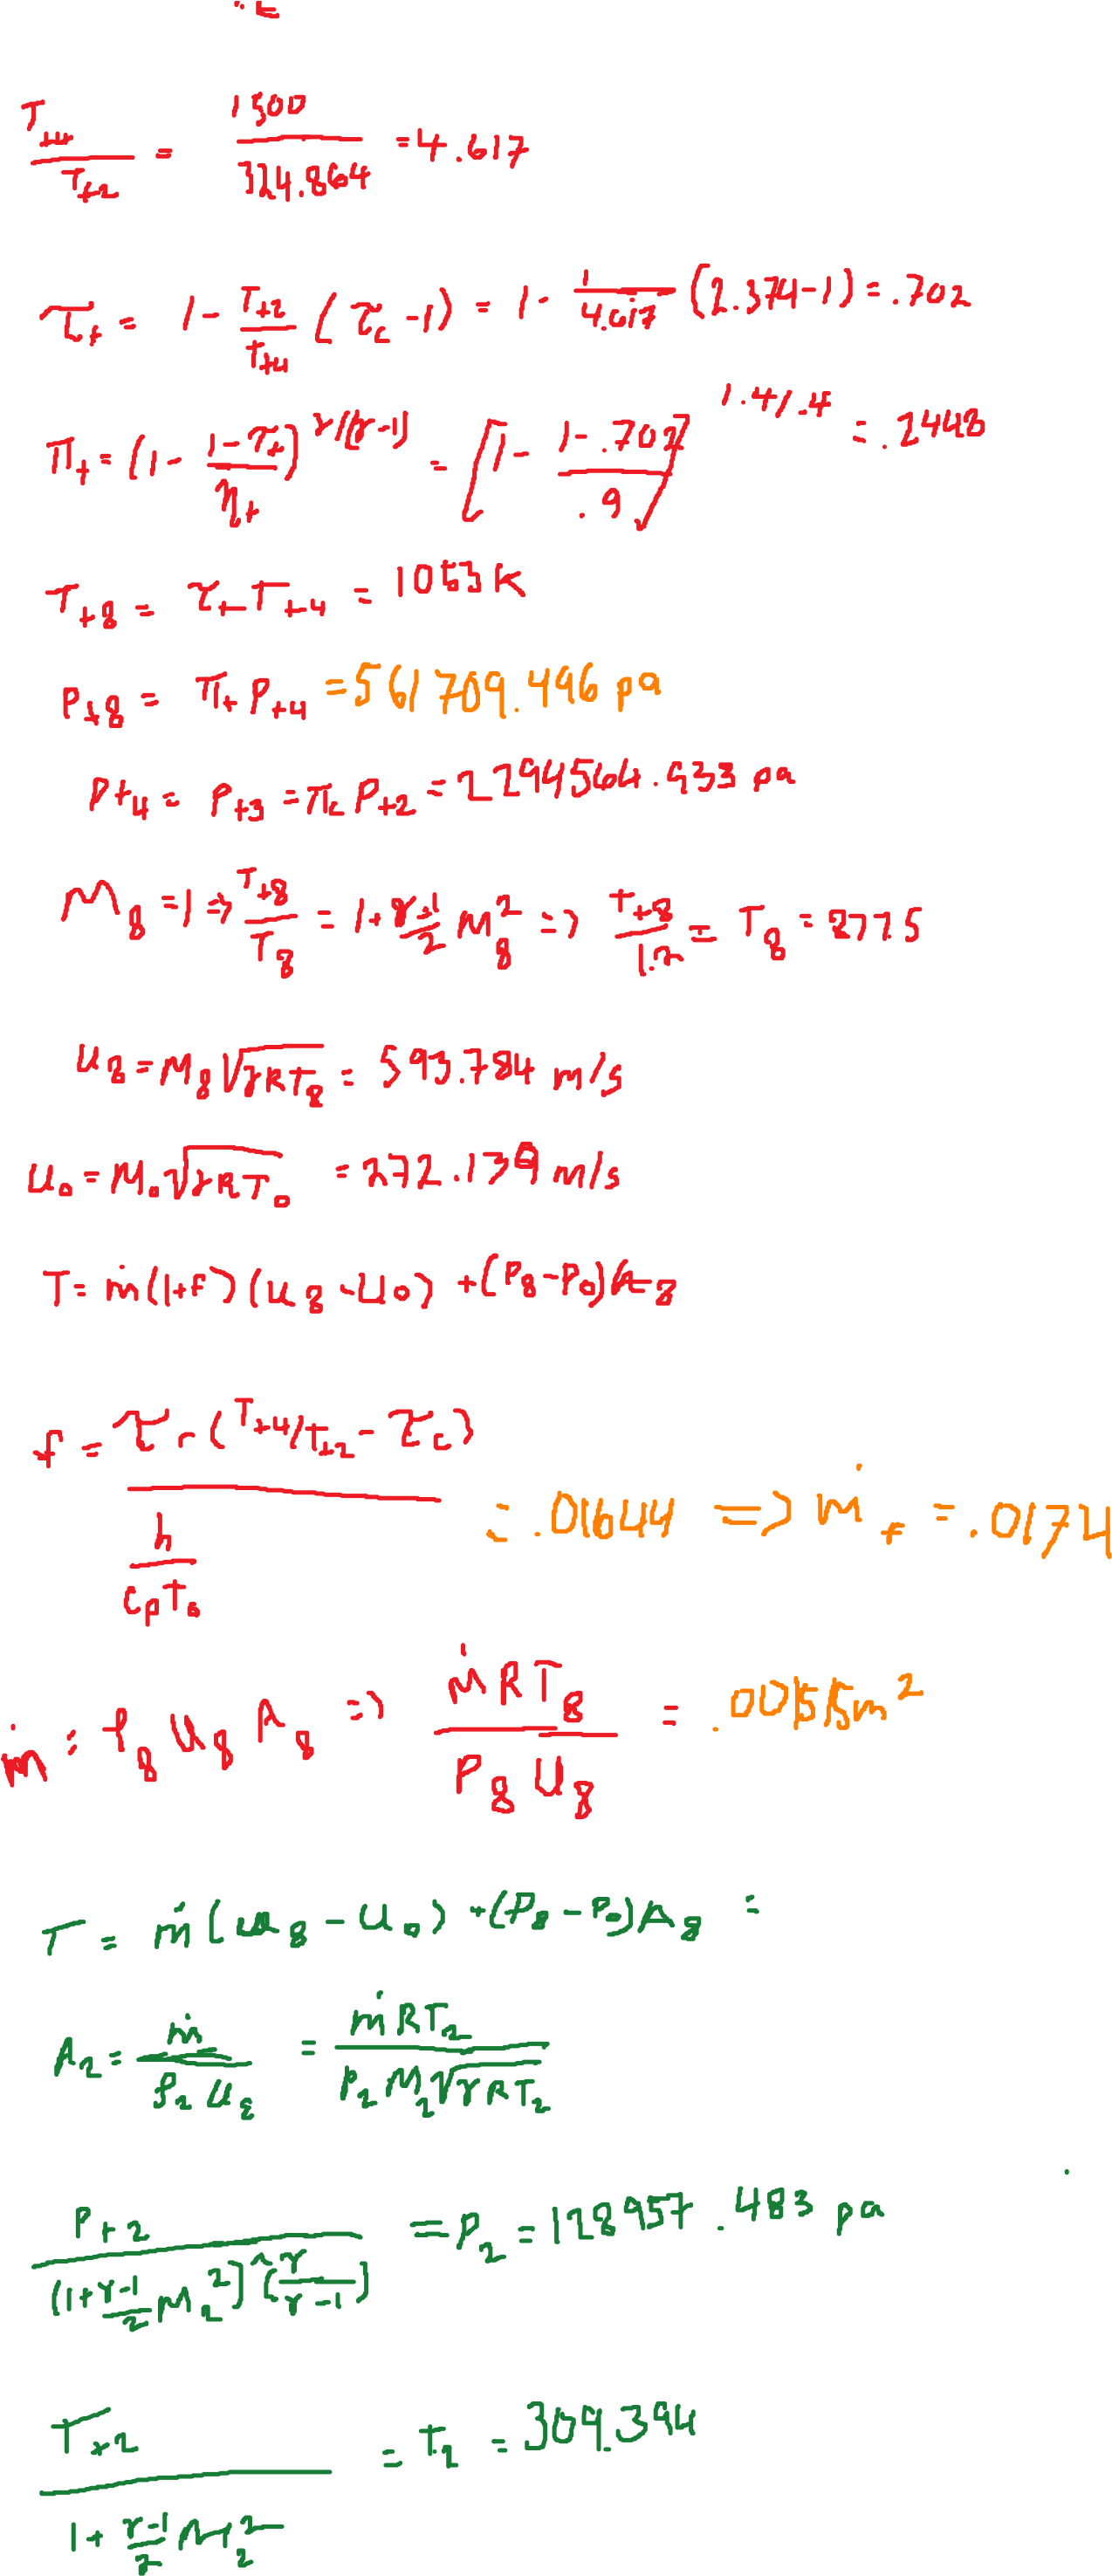 T_t4/T_t2 = 1500/324.864 = 4.617
τ_t = 1 - T_t2/T_t4 (τ_c - 1) = 1 - 1/4.617 (2.374-1) = .702
π_t = (1 - (1-τ_t)/η_t)^γ/(γ-1) = [1 - (1-.702)/.9]^1.4/.4 = .2448
T_t8 = τ_t T_t4 = 1053 K
P_t8 = π_t P_t4 = 561709.496 pa
P_t4 = P_t3 = π_c P_t2 = 2294564.933 pa
M_8 = 1 => T_t8/T_8 = 1 + (γ-1)/2 M_8^2 => T_t8/1.2 = T_8 = 877.5
u_8 = M_8 √(γRT_8) = 593.784 m/s
u_0 = M_0 √(γRT_0) = 272.139 m/s
T = ṁ(1+f)(u_8 - u_0) + (P_8 - P_0)A_8
f = τ_r (T_t4/t_t2 - τ_c) / (h/(c_p T_0)) = .01644 => ṁ_f = .0174
ṁ = ρ_8 u_8 A_8 => ṁRT_8/(P_8 u_8) = .00155m^2
T = ṁ(u_8 - u_0) + (P_8 - P_0)A_8 =
A_2 = ṁ/(ρ_2 u_2) = ṁRT_2/(P_2 M_2 √(γRT_2))
P_t2/(1 + (γ-1)/2 M_2^2)^(γ/(γ-1)) = P_2 = 128957.483 pa
T_t2/(1 + (γ-1)/2 M_2^2) = T_2 = 309.394